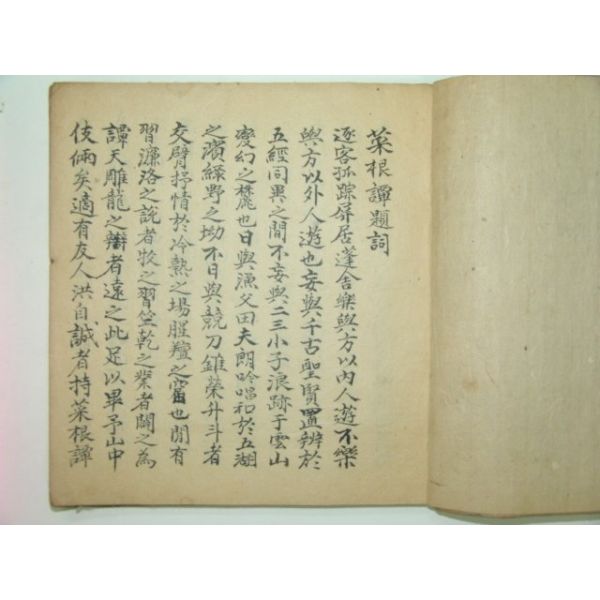 菜根譚題詞
逐客孤踪屏居蓬舍樂與方以內人遊不樂
與方以外人遊也妄與千古聖賢置辨於
五經同異之間不妄與二三小子浪跡于雲山
變幻之麓也日與漁父田夫朗吟唱和於五湖
之濱綠野之坳不日與競刀錐榮升斗者
交臂抒情於冷熱之場腥羶之窟也間有
習濂洛之說者牧之習竺乾之業者闢之為
譚天雕龍之辯者遠之此足以畢予山中
伎倆矣適有友人洪自誠者持菜根譚